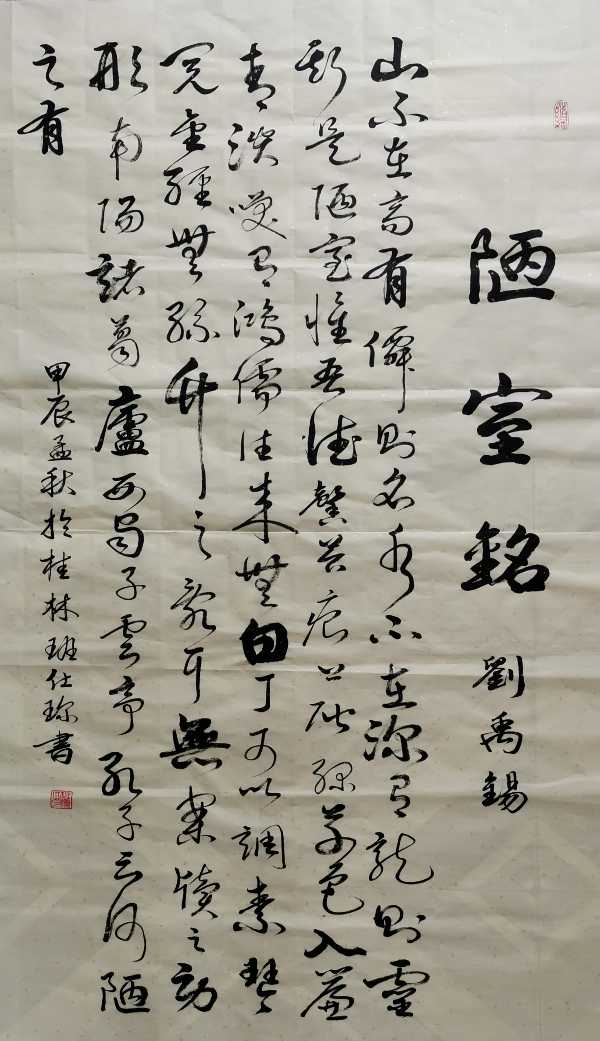 陋室銘
劉禹錫
山不在高有僊則名水不在深有龍則靈
斯是陋室惟吾德馨苔痕上階綠草色入簾
青談咲有鴻儒往來無白丁可以調素琴
閱金經無絲竹之亂耳無案牘之勞
形南陽諸葛廬西蜀子雲亭孔子云何陋
之有
甲辰孟秋於桂林班仕書